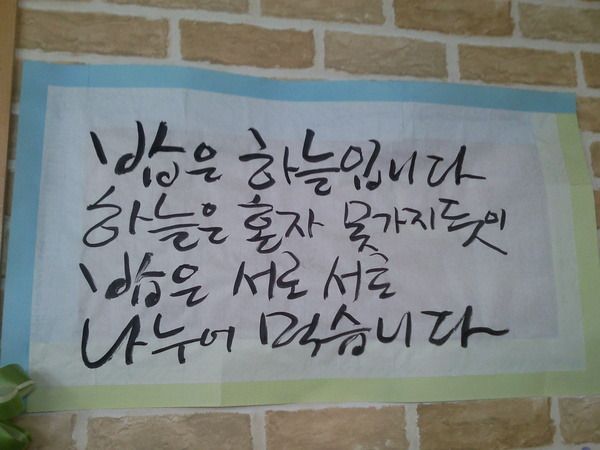 밥은 하늘입니다
하늘은 혼자 못가지듯이
밥은 서로 서로
나누어 먹습니다